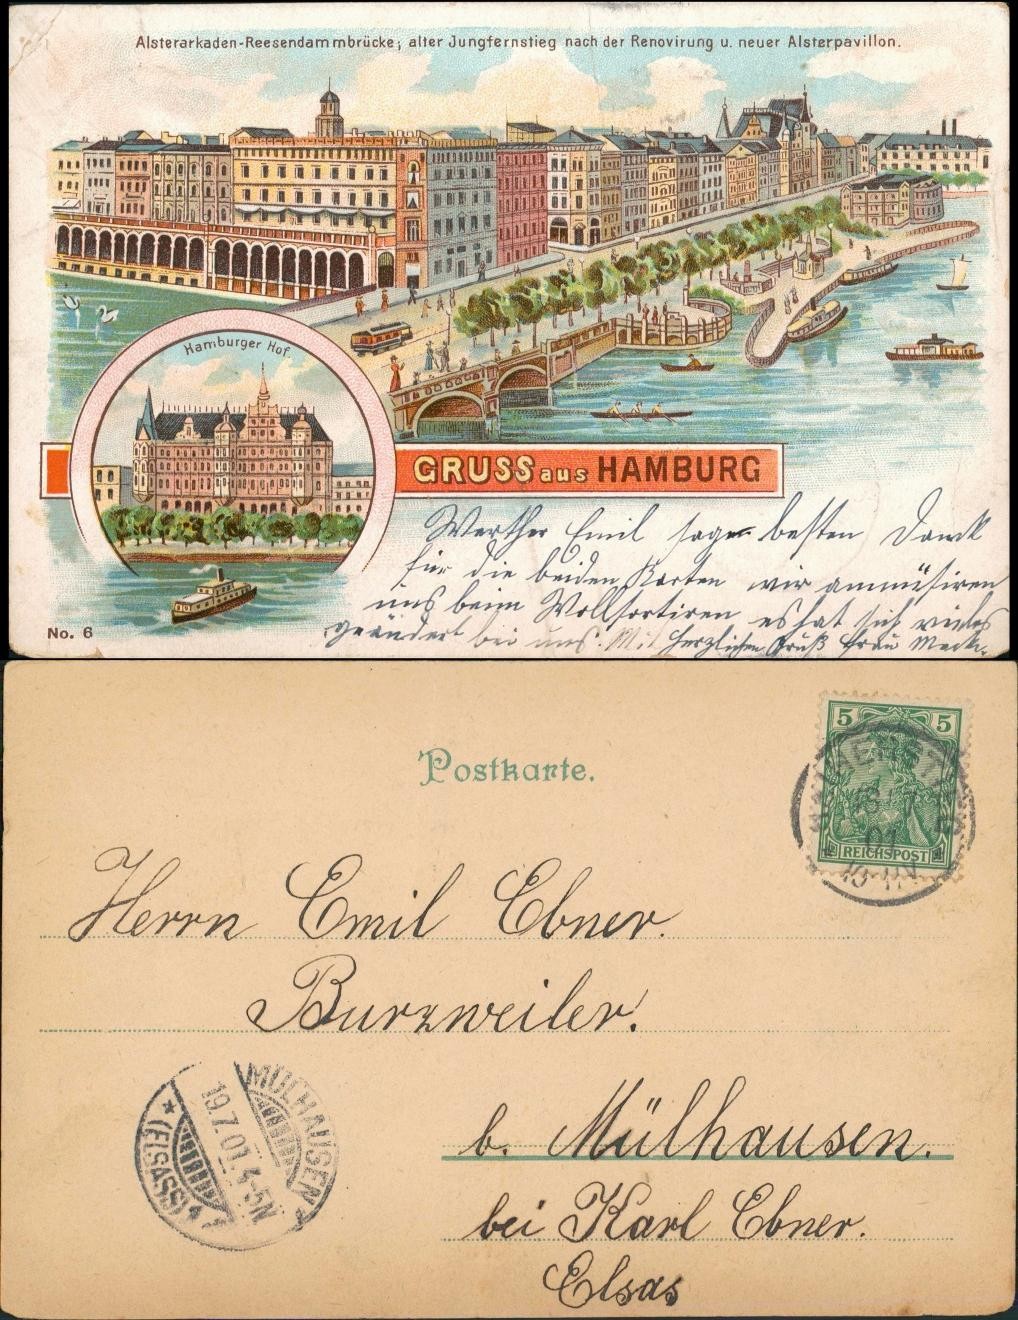 Alsterarkaden-Reesendammbrücke, alter Jungfernstieg nach der Renovirung u. neuer Alsterpavillon.
Hamburger Hof.
GRUSS aus HAMBURG
Werther Emil sage besten Dank
für die beiden Karten wir ammüsiren
uns beim Wollsortiren es hat sich vieles
geändert bei uns. Mit herzlichen Gruß Frau
No. 6
Postkarte.
5 5
REICHSPOST
01
Herrn Emil Ebner.
Burzweiler.
b. Mülhausen.
bei Karl Ebner.
Elsas
MÜLHAUSEN
19.7.01. 4-5N
* (ELSASS) 1